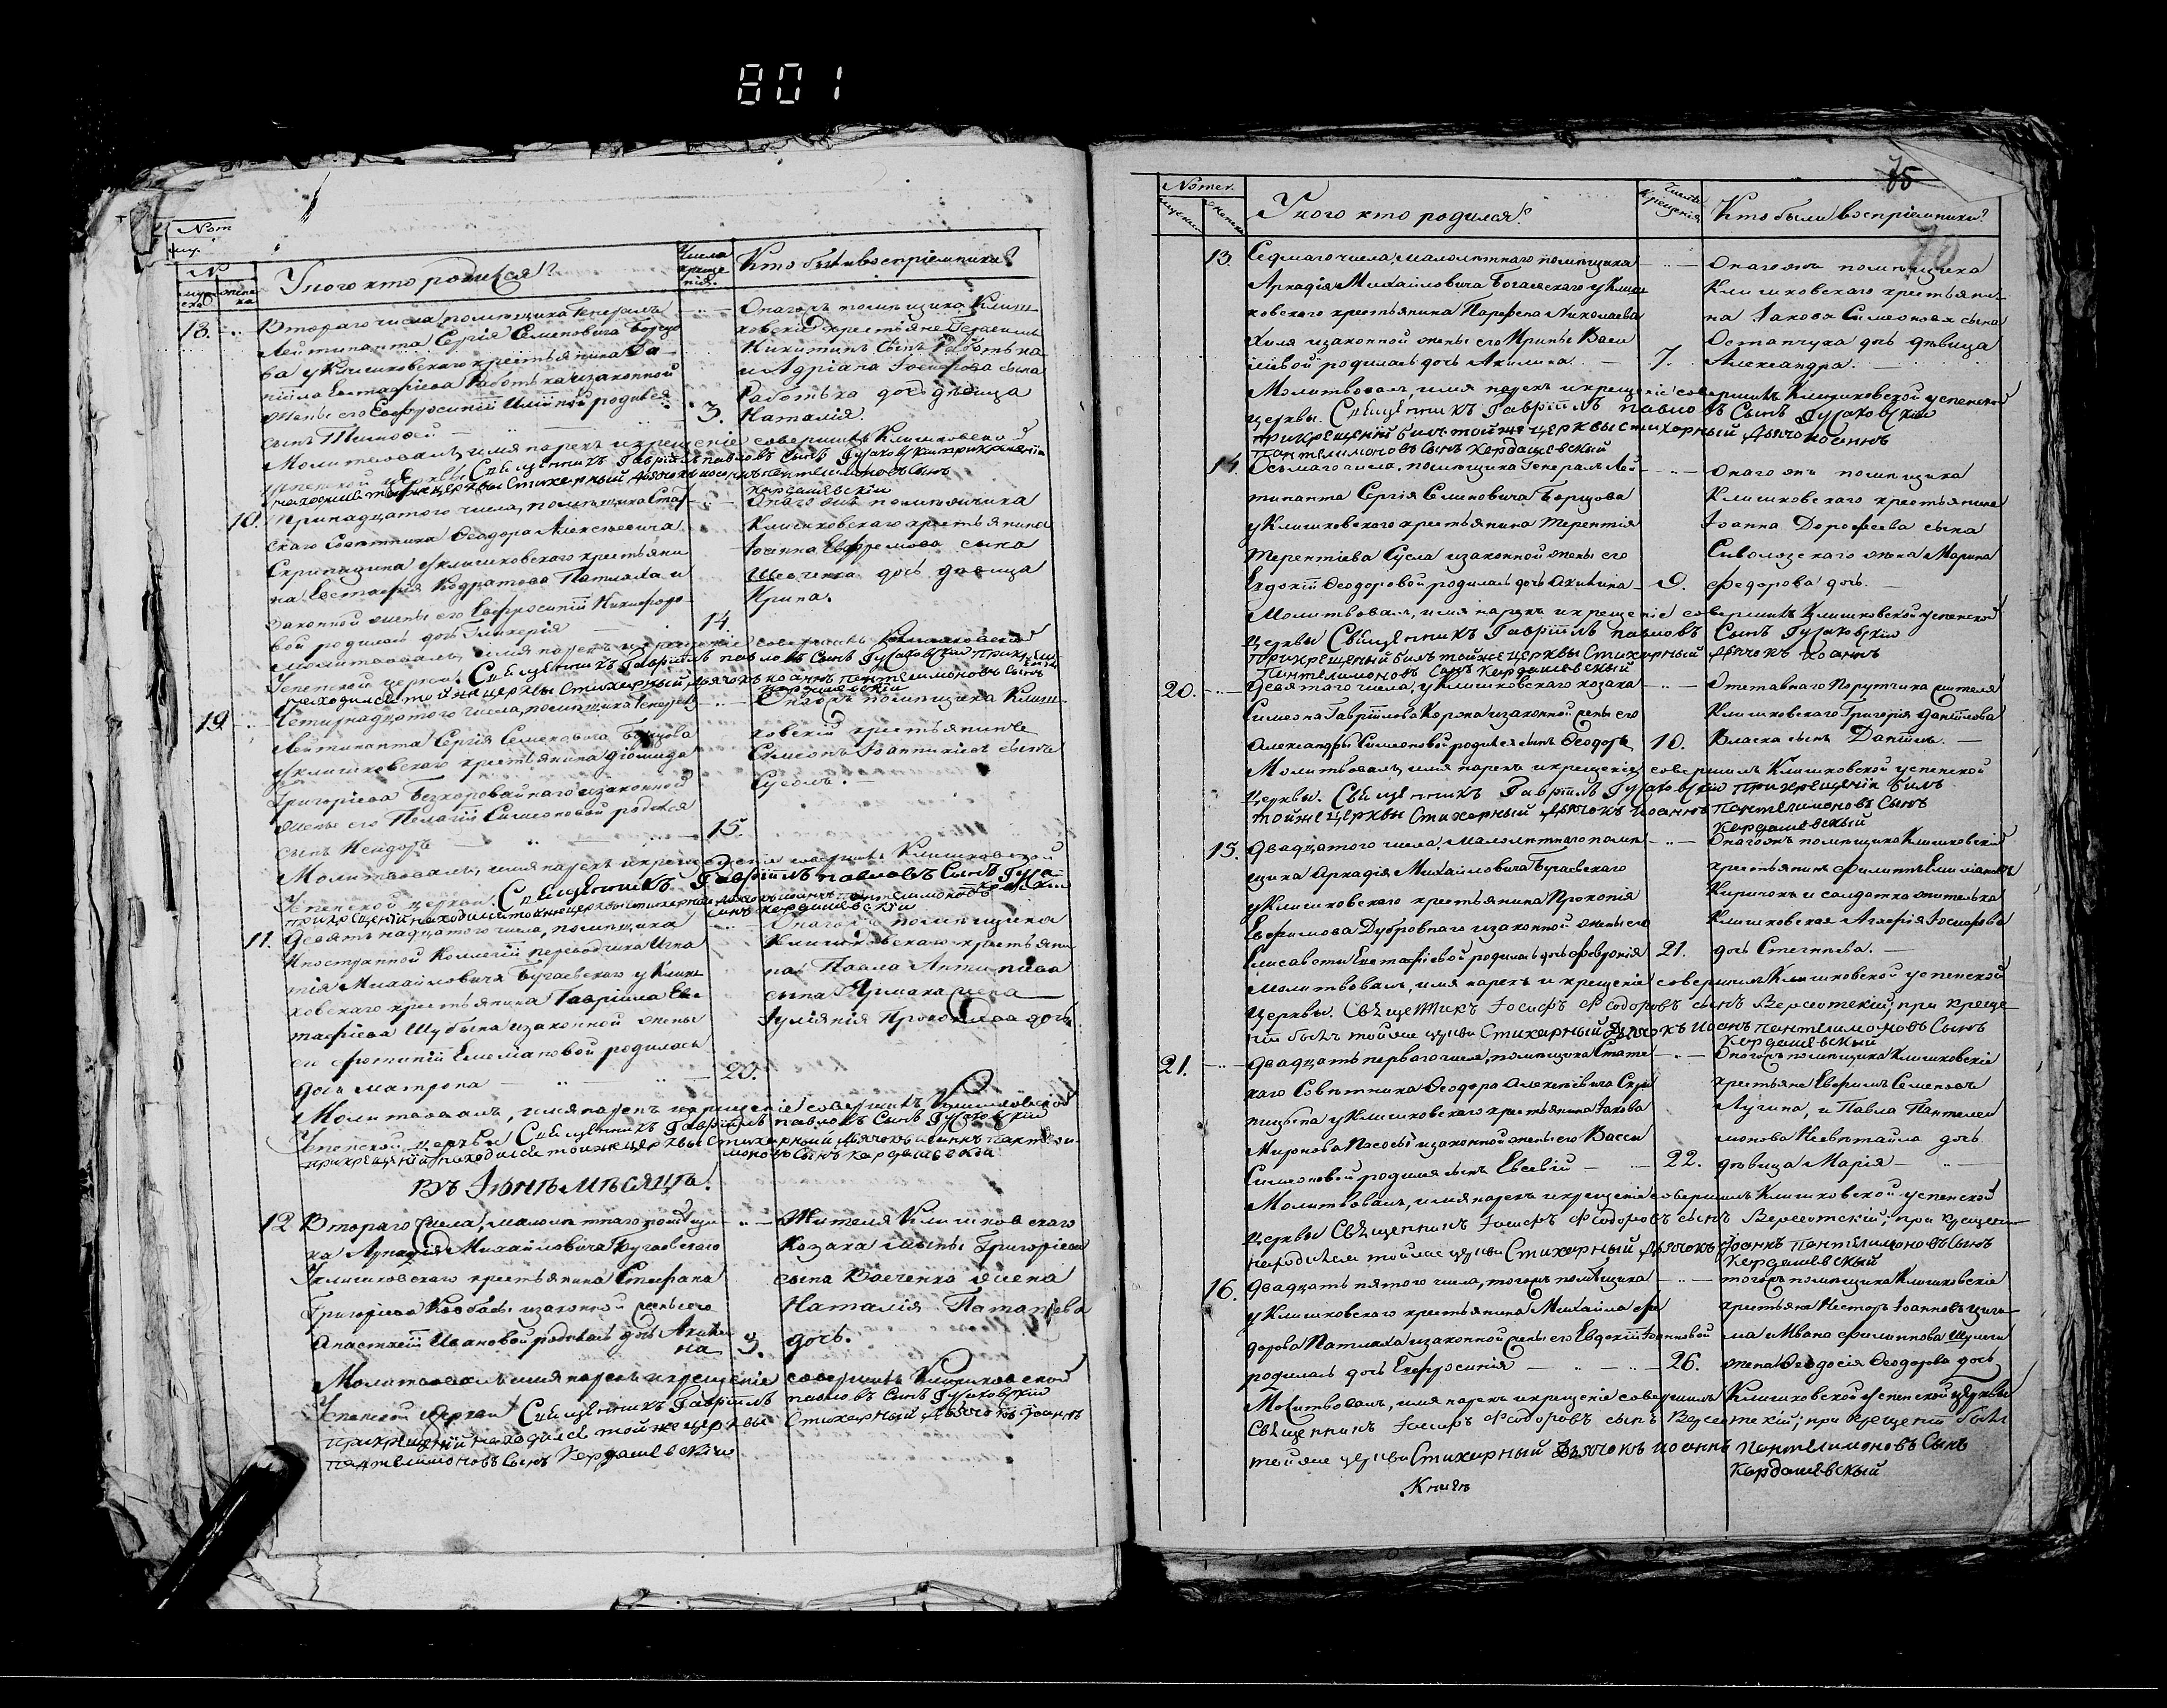 801
Nom
муж.
№
муже
ска
женс
ка
У кого кто родился?
Числа
креще
нія.
Кто были воспріемники?
18.
Втораго числа, помѣщика Генералъ
Лейтинанта Сергія Семеновича Борщо
ва у Клишковскаго крестьянина Да
ніила Евстафіева Работька и законной
жены его Евфросиніи Иліиной родился
сынъ Тимофей
3.
Онагожъ помѣщика Клиш
ковскіе крестьяне Герасимъ
Никитинъ сынъ Работька
и Адріана Іосифова сына
Работька дочь дѣвица
Наталія.
Молитвовалъ, имя нарекъ и крещеніе совершилъ Клишковской
Успенской церквы Священникъ Гавріилъ павловъ сынъ Гусаковскій при крещеніи
находился тойже церквы Стихарный дьячокъ іоаннъ пантелимоновъ сынъ
кардашевскій
10.
Тринадцатого числа, помѣщика Стат
скаго Совѣтника Ѳеодора Алексѣевича
Скрипицина у клишковскаго крестьяни
на Евстафія Кодратова Патлаха и
законной жены его Евфросиніи Никифоро
вой родилась дочь Гликерія
14.
Онаго жъ помѣщика
Клишковскаго крестьянина
Іоанна Ефремова сына
Шевченка дочь дѣвица
Ирина.
Молитвовалъ, имя нарекъ и крещеніе совершилъ Клишковской
Успенской церквы Священникъ Гавріилъ павловъ сынъ Гусаковскій при крещ
еніи
находился тойже церквы Стихарный дьячокъ іоаннъ пантелимоновъ сынъ
кардашевскій
19.
Четирнадцатого числа, помѣщика Генералъ
Лейтинанта Сергія Семеновича Борщова
у клишковскаго крестьянина Діомида
Григоріева Безкоровайнаго и законной
жены его Пелагіи Симеоновой родился
сынъ Исидоръ
15.
Онагожъ помѣщика Клиш
ковскій крестьянинъ
Симеонъ Іоанникіевъ сынъ
Сусолъ.
Молитвовалъ, имя нарекъ и крещеніе совершилъ Клишковской
Успенской церквы Священникъ Гавріилъ павловъ сынъ Гуса
ковскій
при крещеніи находился тойже церквы стихарный дьячокъ іоаннъ пантелимоновъ
сынъ кардашевскій
11.
Девятьнадцатого числа, помѣщика
Иностранной Коллегіи переводчика Игна
тія Михайловича Бугаевскаго у Клиш
ковскаго крестьянина Гавріила Евс
тафіева Шубына и законной жены
его Фотиніи Емеліановой родилась
дочь Матрона
20.
Онагожъ помѣщика
Клишковскаго крестьяни
на Павла Антипіева
сына жена
Іуліянія Прокопіева дочь
Молитвовалъ, имя нарекъ и крещеніе совершилъ Клишковской
Успенской церквы Священникъ Гавріилъ павловъ сынъ Гусаковскій
при крещеніи находился тойже церквы стихарный дьячокъ іоаннъ пантели
моновъ сынъ кардашевскій
Въ Іюнѣ мѣсяцѣ.
12
Втораго числа, малолѣтнаго помѣщи
ка Аркадія Михайловича Бугаевскаго
У клишковскаго крестьянина Стефана
Григоріева Ковбасы и законной жены его
Анастасіи Ивановой родилась дочь Акили
на
3.
Жителя Клишковскаго
Козака Григоріева
сына Ваеченко жена
Наталія
дочь.
Молитвовалъ имя нарекъ и крещеніе совершилъ Клишковской
Успенской церкви Священникъ Гавріилъ павловъ сынъ Гусаковскій
при крещеніи находился тойже церквы Стихарный дьячокъ Іоаннъ
пантелимоновъ сынъ Кардашевскій
75
70
Nomer.
мужеска
женска
У кого кто родился?
Число
крещенія
Кто были воспріемники?
13.
Седмаго числа, малолѣтнаго помѣщика
Аркадія Михайловича Богаевскаго у Клиш
ковского крестьянина Парфена Николаева
Хиля и законной жены его Ирины Васи
ліевой родилась дочь Акилина.
7.
Онагожъ помѣщика
Клишковскаго крестьяни
на Іакова Симеонова сына
Остапчука дочь дѣвица
Александра.
Молитвовалъ, имя нарекъ и крещеніе совершилъ Клишковской успенской
церквы. Священникъ Гавріилъ павловъ Сынъ Гусаковскій
при крещеніи билъ тойже церквы стихарный дьячокъ іоаннъ
пантелимоновъ сынъ Кардашевскый
14.
Осьмаго числа, помѣщика Генералъ Лей
тинанта Сергія Семеновича Борщова
у Клишковского крестьянина Терентія
Терентіева Сусла и законной жены его
Евдокіи Ѳеодоровой родилась дочь Акилина
9.
Онаго жъ помѣщика
Клишковскаго крестьянина
Іоанна Дорофеева сына
жена Марина
Федорова дочь.
Молитвовалъ, имя нарекъ и крещеніе совершилъ Клишковской успенской
церквы Священникъ Гавріилъ павловъ Сынъ Гусаковскій
при крещеніи билъ тойже церквы Стихарный дьячокъ іоаннъ
пантелимоновъ сынъ Кердашевскый
20.
Девятого числа, у Клишковскаго козака
Симеона Гавріилова Коржа и законной жены его
Александры Симеоновой родился сынъ Ѳеодоръ
10.
Отставнаго Порутчика жителя
Клишковскаго Григорія Даніилова
Власка сынъ Даніилъ.
Молитвовалъ, имя нарекъ и крещеніе совершилъ Клишковской успенской
церквы. Священникъ Гавріилъ Гусаковскій при крещеніи билъ
тойже церквы Стихарный дьячокъ іоаннъ пантелимоновъ сынъ
Кердашевскый
15.
Двадцатого числа, Малолѣтнаго помѣ
щика Аркадія Михайловича Бугаевскаго
у Клишковскаго крестьянина Прокопія
Ефримова Дубровнаго и законной жены его
Елисаветы Евстафіевой родилась дочь Февронія
21.
Онагожъ помѣщика Клишковскій
крестьянинъ Филиппъ Емиліановъ
Киричокъ и салдатка жителька
Клишковская Агафія Іосифова
дочь
Молитвовалъ, имя нарекъ и крещеніе совершилъ Клишковской успенской
Церквы. Священникъ Іосифъ Феодоровъ сынъ Вержетскій; при креще
ніи былъ тойже церкви Стихарный Дьячокъ Иоанъ пантелимоновъ Сынъ
Кердашевскый
21.
Двадцать перваго числа, помѣщика Статс
каго Совѣтника Ѳеодора Алексѣевича Скри
пицына у Клишковскаго крестьянина Іакова
Миронова и законной жены его Вассы
Симеоновой родился сынъ Евсевій
22.
Онагожъ помѣщика Клишковскіе
крестьяне Ефримъ Семеновъ
Лугина, и Павла Пантелей
монова дочь
дѣвица Марія
Молитвовалъ, имя нарекъ и крещеніе совершилъ Клишковской успенской
церквы Священникъ Іосифъ Феодоровъ сынъ Вержетскій; при крещеніи
находился тойже церкви Стихарный дьячокъ Іоанъ Пантелимоновъ Сынъ
Кердашевскый
16.
Двадцать пятого числа, тогожъ помѣщика
у Клишковскаго крестьянина Михайла Фе
дорова Патлаха и законной жены его Евдокіи Іоанновой
родилась дочь Евфросинія
26.
тогожъ помѣщика Клишковскіе
крестьяне Несторъ Іоанновъ
Ивана Филиппова
жена Ѳеодосія Ѳеодорова дочь
Молитвовалъ, имя нарекъ и крещеніе совершилъ Клишковской Успенской церквы
Священникъ Іосифъ Феодоровъ сынъ Вержетскій; при крещеніи былъ
тойже церкви Стихарный Дьячокъ иоаннъ пантелимоновъ Сынъ
Кардашевскый